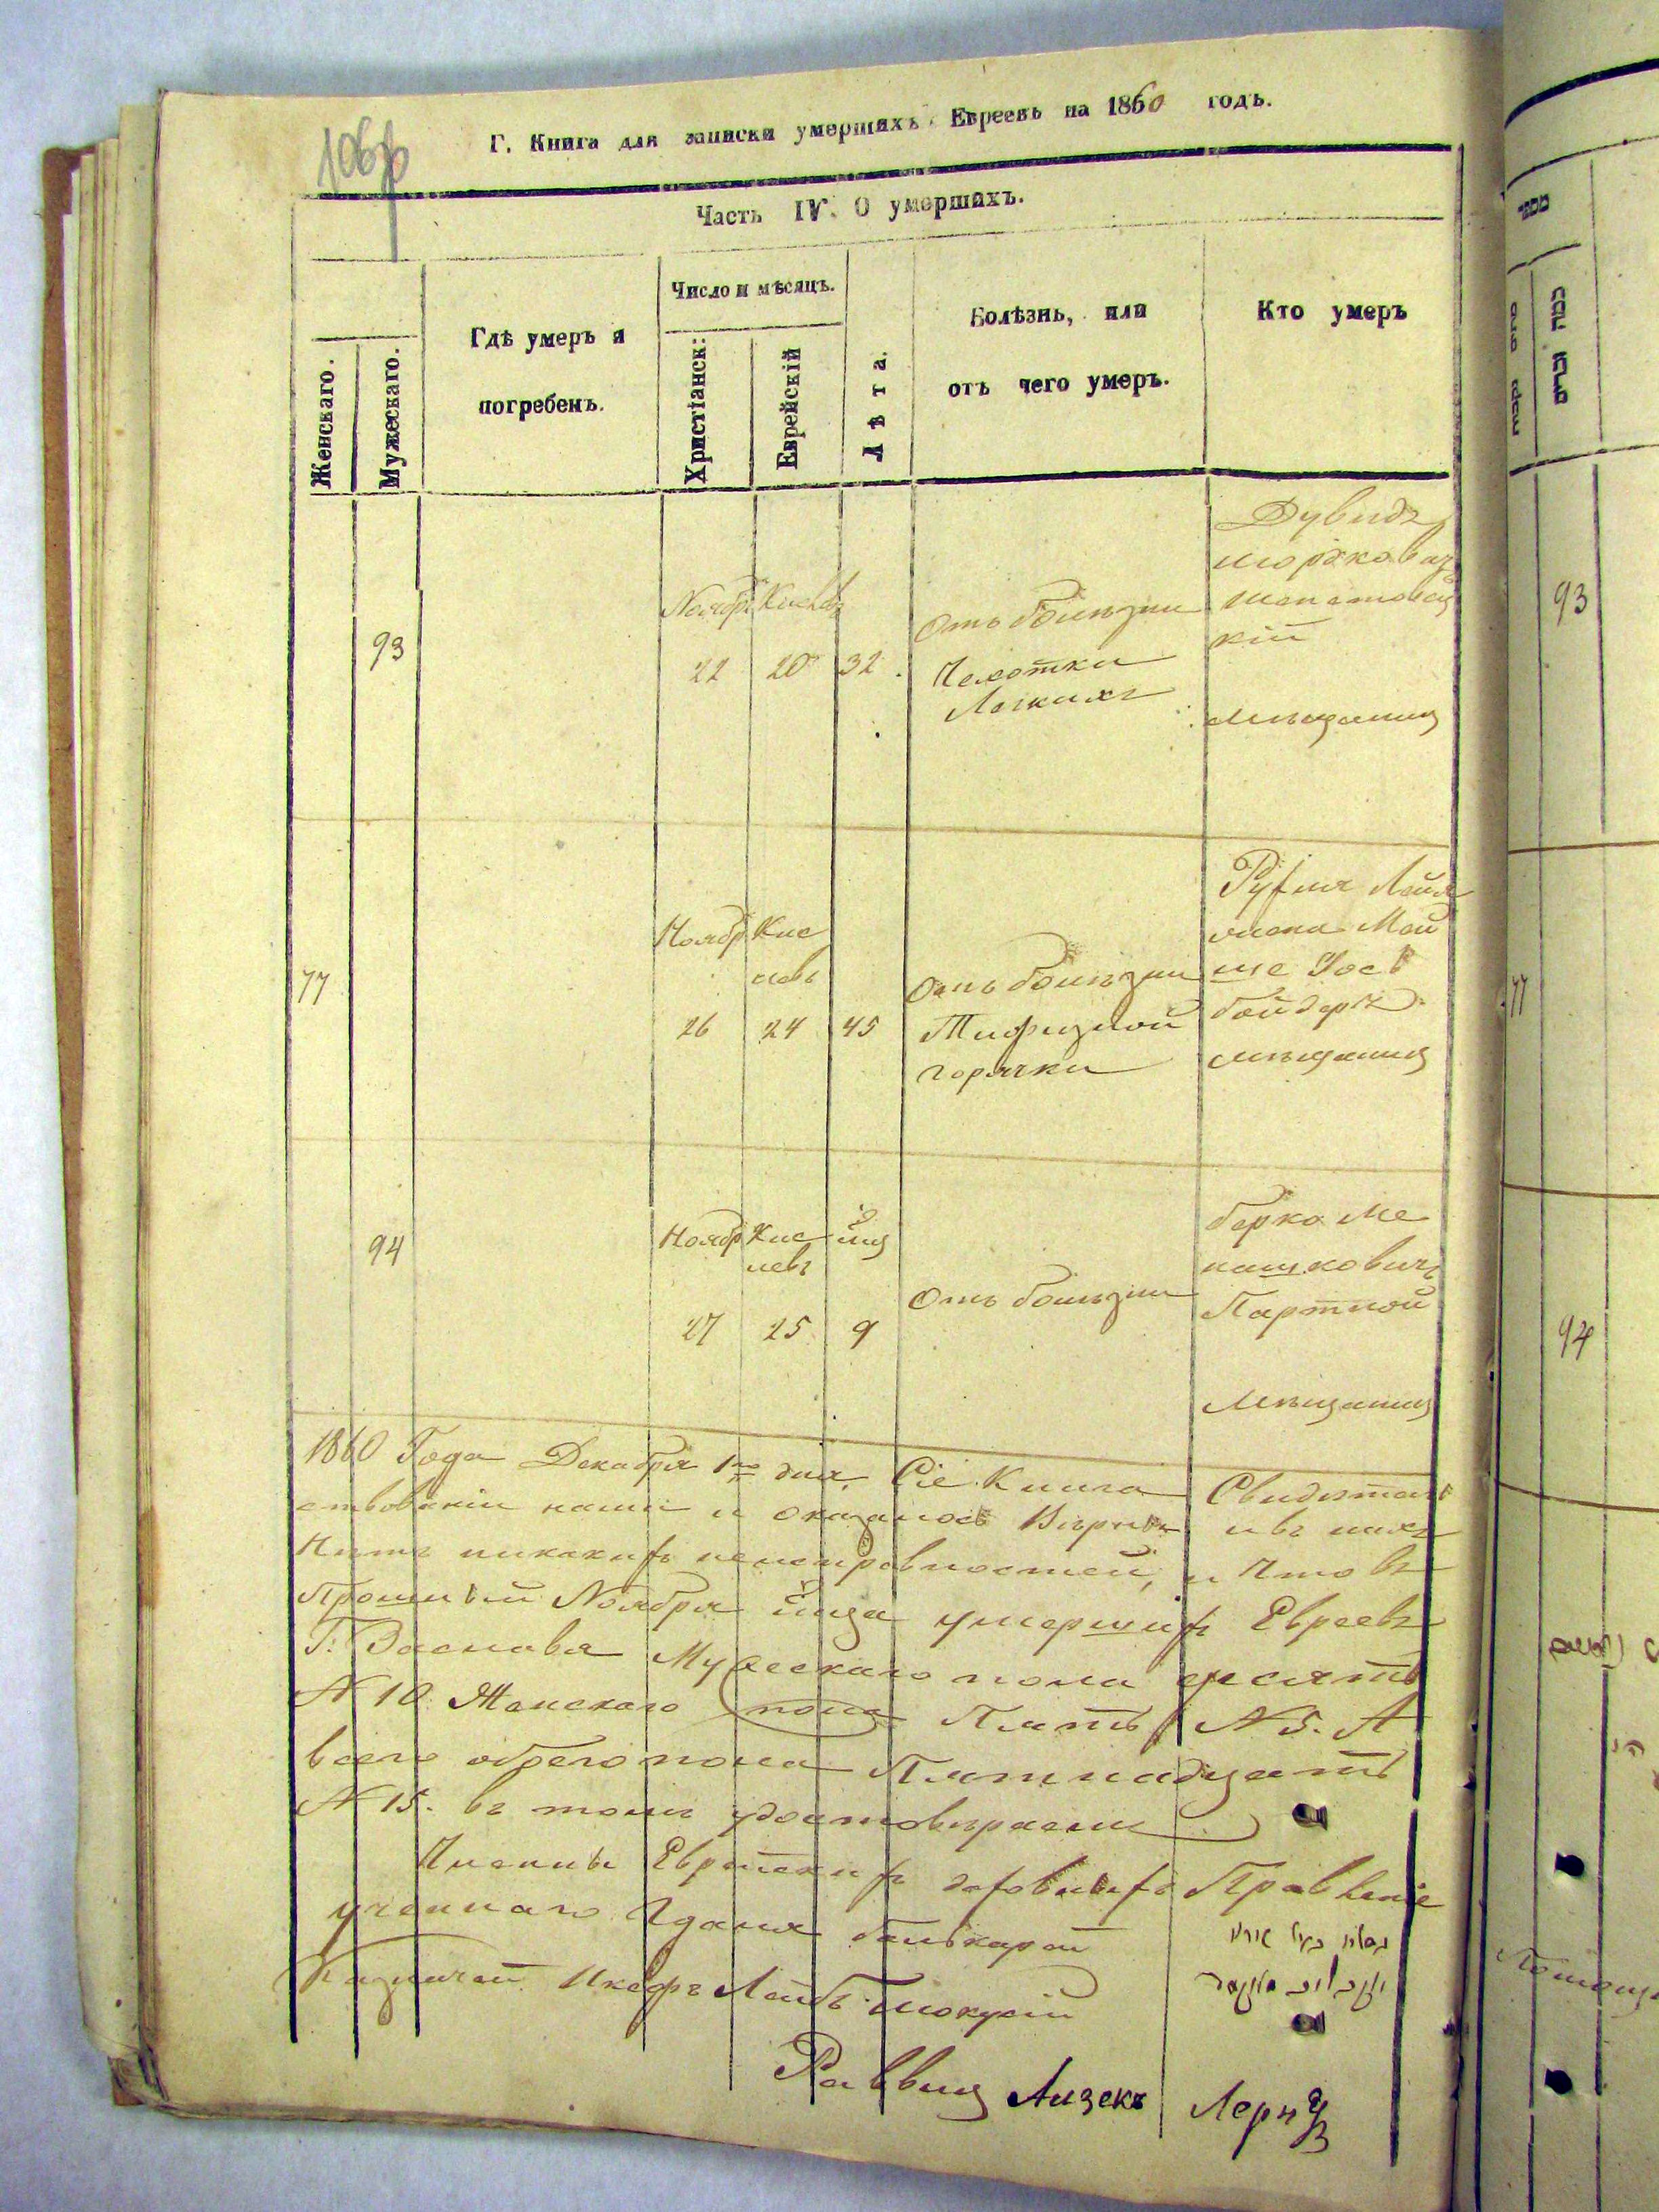 106 об
Г. Книга для записки умершихъ Евреевъ на 1860 годъ.
Часть IV. О умершихъ.
Женскаго.
Мужескаго.
Гдѣ умеръ и
погребенъ.
Число и мѣсяцъ.
Христіанск:
Еврейскій
Лѣта.
Болѣзнь, или
отъ чего умеръ.
Кто умеръ
93
Ноябр Кислевъ
22 20 32
Отъ болѣзни
Чехотки
Легкихъ
Дувидъ
Моржковичъ
Шепетовец
кій
мѣщанин
77
Ноябр Кис
левъ
26 24 45
Отъ болѣзни
Тифизной
горячки
Рухля Лейз
Мой
ше Іось
бойдеръ
мѣщанин
94
Ноябр Кис
левъ
27 25 9
Отъ болѣзни
Берко Ме
нашковичъ
Партной
Мѣщанин
1860 Года Декабря 1го дня, Сіе Книга Свидѣтель
ствовании нами и оказалось Вѣрнымъ и въ ней
Нѣтъ никакихъ неисправностей, и что въ
прошлый Ноябрь м-ца умершихъ Евреевъ
Г. Заслава Мужескаго пола десять
N 10. Женскаго пола Пять N 5. А
всего обоего пола Пятнадцать
N 15. въ томъ удостовѣряемъ
Члены Еврейскихъ духовныхъ Правленіе
ученнаго
Казначей Лейбъ
Раввинъ Аизекъ Лернер
93
77
94